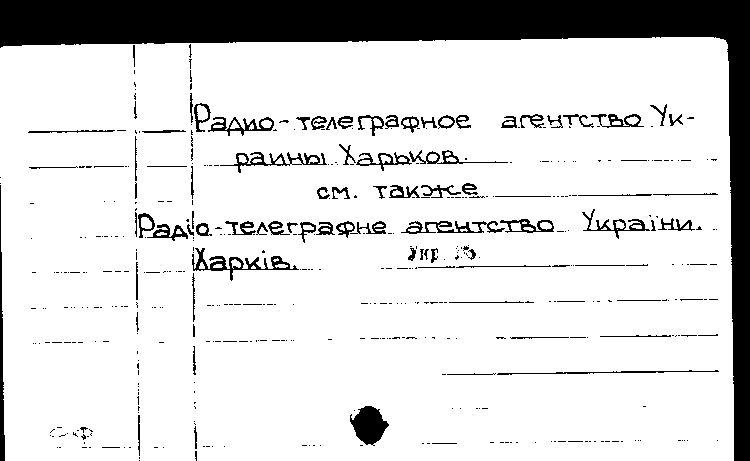 Радио-телеграфное агентство Ук-
раины Харьков.
см. также
Радіо-телеграфне агентство України.
Харків. Укр